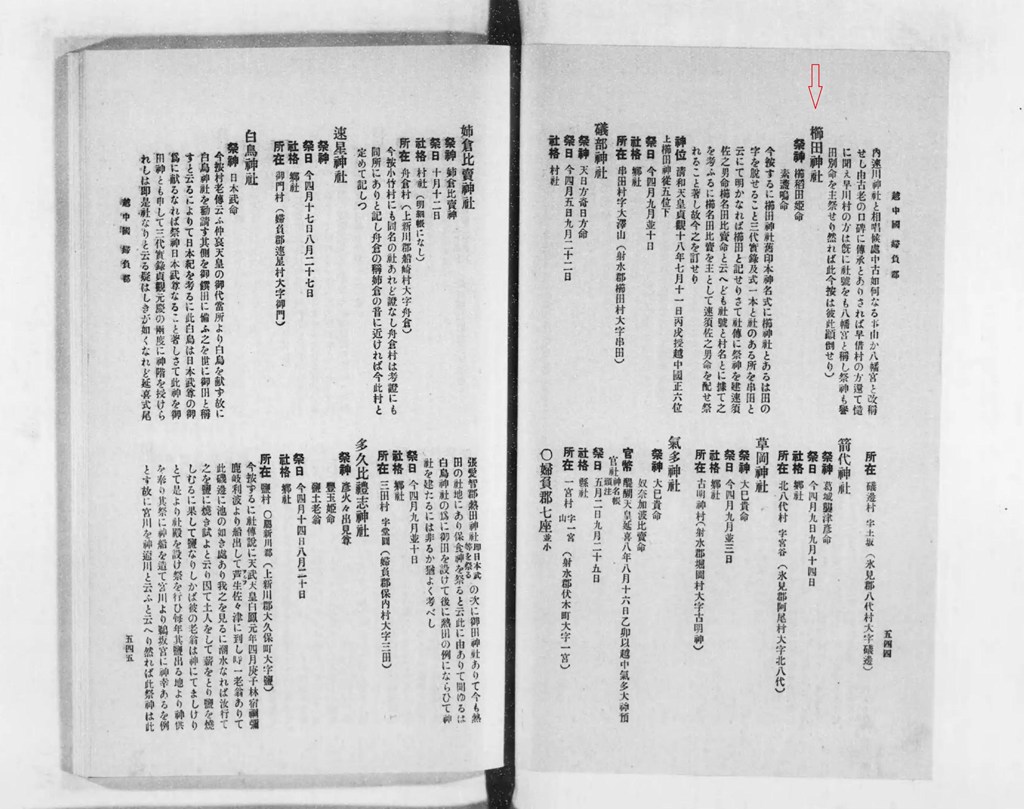 越中國 婦負郡
五四四
內速川神社と相唱候處中古如何なる事由か八幡宮と改稱
せし由古老の口碑に傳承とありされば早借村の方還て慥
に聞え早川村の方は旣に社號をも八幡宮と稱し祭神も譽
田別命を主祭せり然れば此今按は彼此顚倒せり)
櫛田神社
祭神 櫛稻田姬命
素盞嗚命
今按するに櫛田神社舊印本神名式に櫛神社とあるは田の
字を脫せること三代實錄及式一本と社のある所を串田と
云にて明かなれば櫛田と記せりさて社傳に祭神を建速須
佐之男命櫛名田比賣命と云へども社號と村名とに據て之
を考ふるに櫛名田比賣を主として速須佐之男命を配せ祭
れること著し故今之を訂せり
神位 淸和天皇貞觀十八年七月十一日丙戌授越中國正六位
上櫛田神從五位下
祭日 今四月九月並十日
社格 鄕社
所在 串田村字大澤山(射水郡櫛田村大字串田)
礒部神社
祭神 天日方奇日方命
祭日 今四月五日九月二十二日
社格 村社
所在 礒邊村 字土坂(氷見郡八代村大字礒邊)
箭代神社
祭神 葛城襲津彥命
祭日 今四月九日九月十四日
社格 鄕社
所在 北八代村 字宮谷(氷見郡阿尾村大字北八代)
草岡神社
祭神 大巳貴命
祭日 今四月九月並三日
社格 鄕社
所在 古明神村(射水郡堀岡村大字古明神)
氣多神社
祭神 大巳貴命
奴奈加波比賣命
官幣 醍醐天皇延喜八年八月十六日乙卯以越中氣多大神預
官社神名帳頭註
祭日 五月二日九月二十五日
社格 縣社
所在 一宮村 字一宮山(射水郡伏木町大字一宮)
○婦負郡七座並小
姉倉比賣神社
祭神 姉倉比賣神
祭日 十月十二日
社格 村社(明細帳になし)
所在 舟倉村(上新川郡船崎村大字舟倉)
今按小竹村にも同名の社あれど證なし舟倉村は考證にも
同所にありと記し舟倉の稱姉倉の音に近ければ今此村と
定めて記しつ
速星神社
祭神
祭日 今四月十七日八月二十七日
社格 鄕社
所在 御門村(婦負郡速星村大字御門)
白鳥神社
祭神 日本武命
今按村老傳云ふ仲哀天皇の御代當所より白鳥を獻ず故に
白鳥神社を勸請す其側を御饌田に備ふ之を世に御田と稱
すと云るによりて日本紀を考るに此白鳥は日本武尊の御
爲に獻るなれば祭神日本武尊なること著しさて此神を御
田神とも申して三代實錄貞觀元慶の兩度に神階を授けら
れしは即是社なりと云る疑はしきが如くなれど延喜式尾
越中國 婦負郡
張愛智郡熱田神社卽日本武等を祭るの次に御田神社ありて今も熱
田の社地にあり保食神を祭ると云此に由ありて聞ゆるは
白鳥神社の爲に御田を設けて後に熱田の例にならひて神
社を建たるには非るか猶よく考べし
祭日 今四月九月並十日
社格 鄕社
所在 三田村 字堂圓(婦負郡保內村大字三田)
多久比禮志神社
祭神 彥火々出見尊
豐玉姬命
鹽土老翁
祭日 今四月十四日八月二十日
社格 鄕社
所在 鹽村 ○屬新川郡(上新川郡大久保町大字鹽)
今按するに社傳說に天武天皇白鳳元年四月庚子林宿禰彌
鹿岐利波より船出して芦生佐々津に到し時一老翁ありて
此磯邊に池の如き處あり我之を見るに潮水なれば汝行て
之を鹽に燒き試よと云り因て土人をして薪をとり鹽を燒
しむるに果して鹽なりしかば彼の老翁は神にてましけり
とて是より社殿を設け祭を行ひ每年其鹽出る地より神供
を奉り其祭に神船を造て宮川より鵜坂宮に神幸あるを例
とす故に宮川を神通川と云ふと云へり然れば此祭神は此
五四五